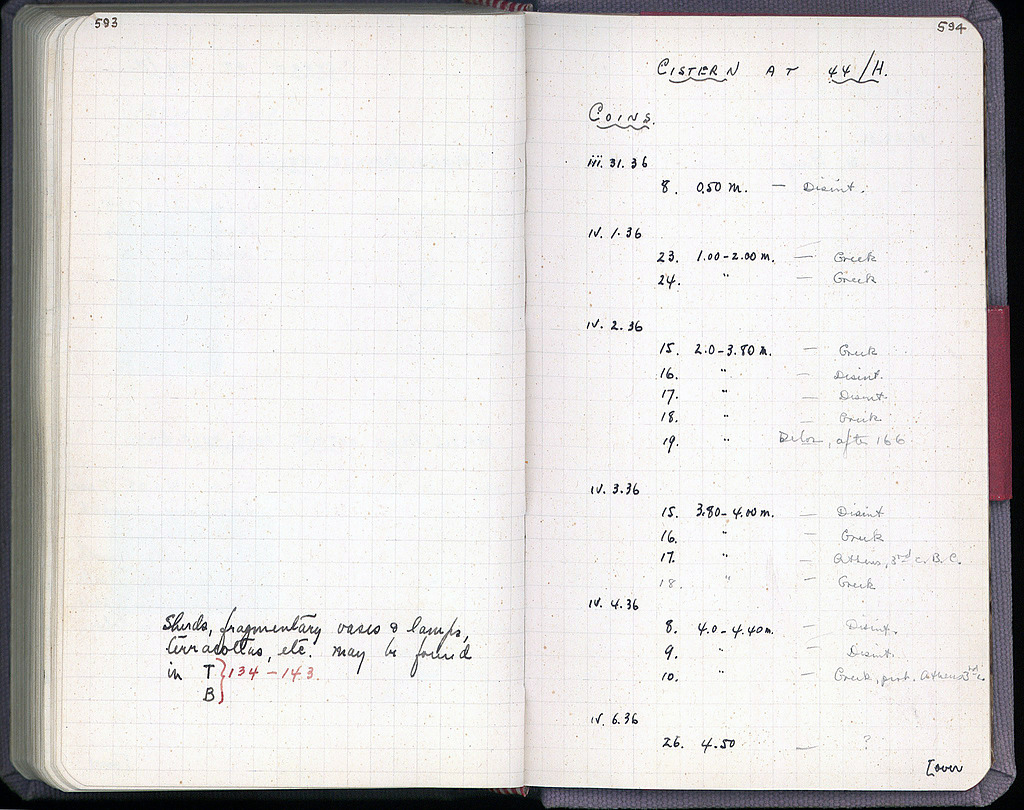 593
Sherds, fragmentary vases & lamps,
terracottas, etc. may be found
in T } 134 – 143.
B
594
CISTERN AT 44/H.
COINS.
iii. 31. 36
8. 0.50 m. — Disint.
iv. 1. 36
23. 1.00 – 2.00 m. — Greek
24. " — Greek
iv. 2. 36
15. 2.0 – 3.80 m. — Greek
16. " — Disint.
17. " — Disint.
18. " — Greek
19. " Delos, after 166
iv. 3. 36
15. 3.80 – 4.00 m. — Disint
16. " — Greek
17. " — Athens, 3rd c. B.C.
18. " — Greek
iv. 4. 36
8. 4.0 – 4.40 m. — Disint.
9. " — Disint.
10. " — Greek, prob. Athens 3rd c.
iv. 6. 36
26. 4.50 — ?
[over